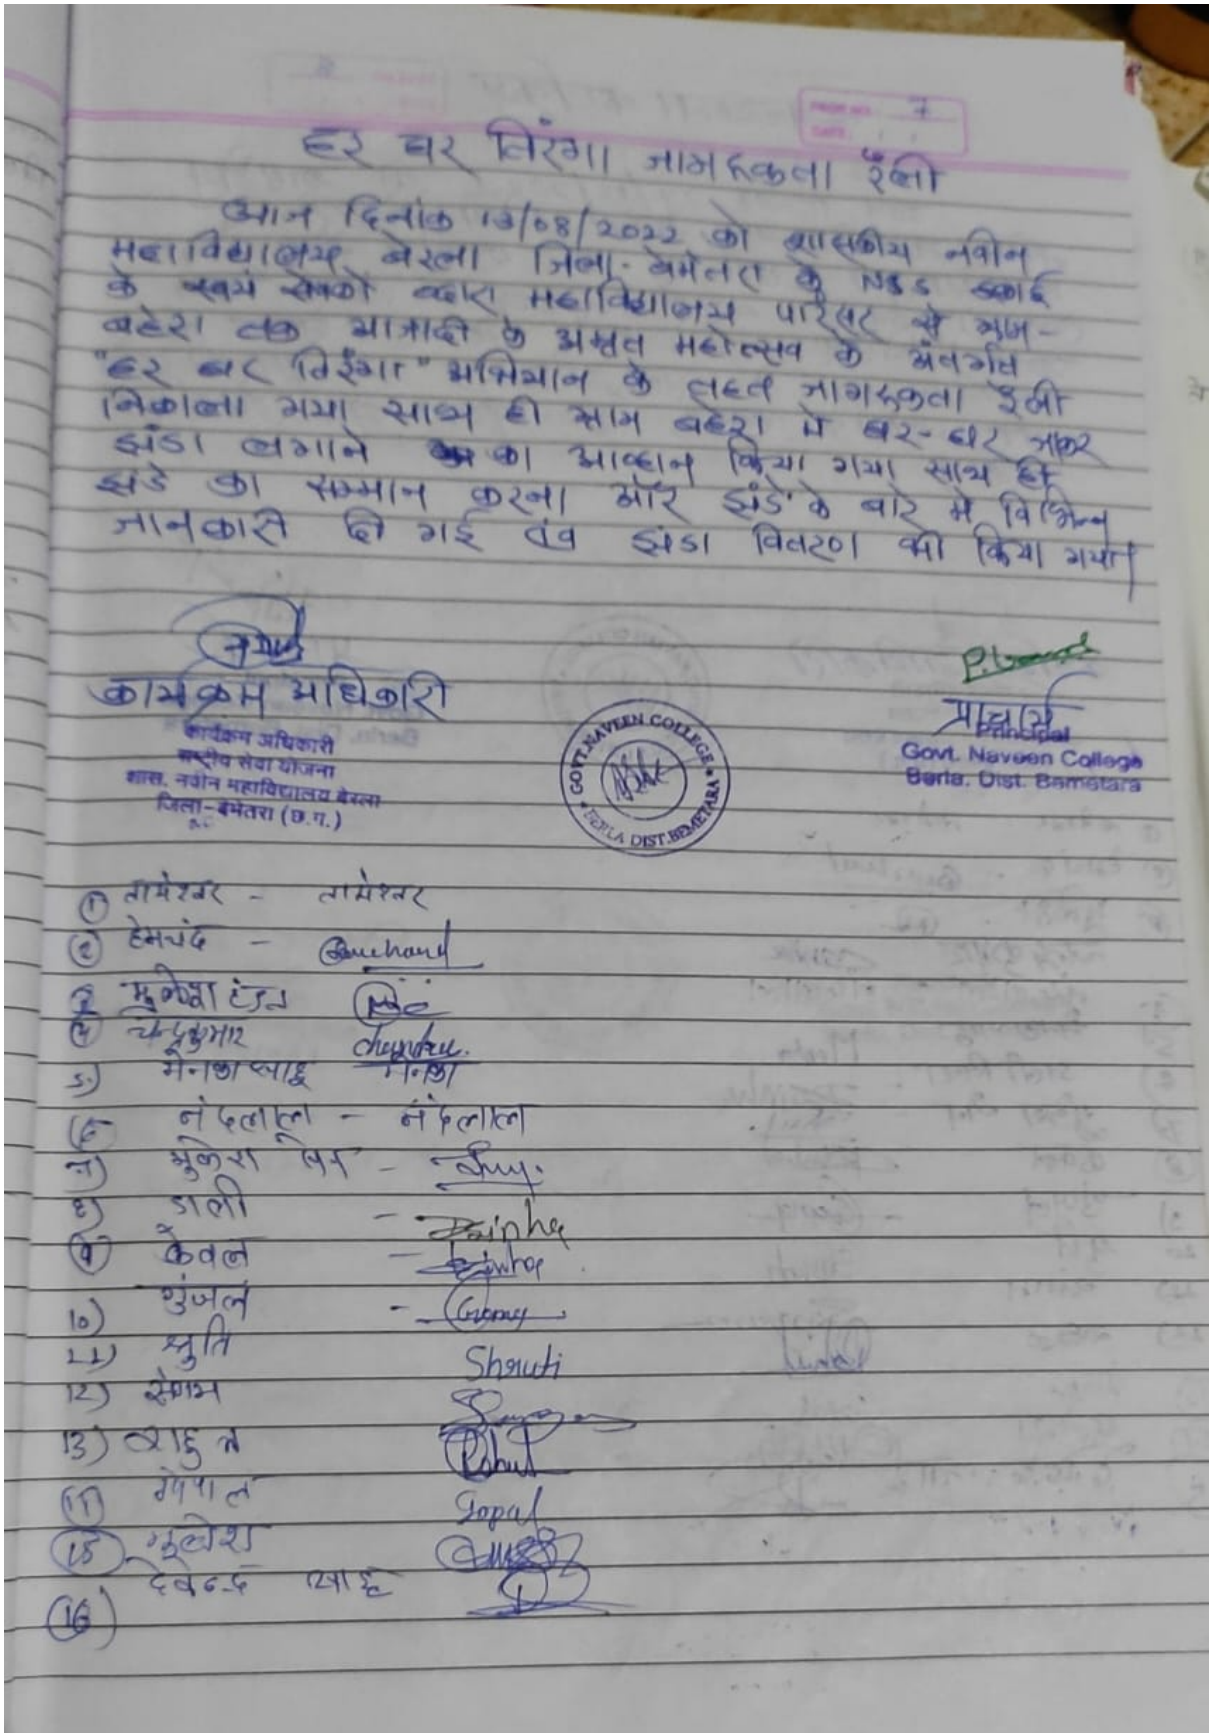 PAGE NO. 7
DATE
हर घर तिरंगा जागरूकता रैली
आज दिनांक 13/08/2022 को शासकीय नवीन
महाविद्यालय बेरला जिला - बेमेतरा के NSS इकाई
के स्वयं सेवको द्वारा महाविद्यालय परिसर से ग्राम-
बहेरा तक आजादी के अमृत महोत्सव के अंतर्गत
"हर घर तिरंगा" अभियान के तहत जागरूकता रैली
निकाला गया साथ ही ग्राम बहेरा मे घर-घर जाकर
झंडा लगाने का आव्हान किया गया साथ ही
झंडे का सम्मान करना और झंडे के बारे मे विभिन्न
जानकारी दी गई एंव झंडा वितरण भी किया गया।
कार्यक्रम अधिकारी
कार्यक्रम अधिकारी
राष्ट्रीय सेवा योजना
शास. नवीन महाविद्यालय बेरला
जिला-बेमेतरा (छ.ग.)
GOVT. NAVEEN COLLEGE
BERLA DIST. BEMETARA
प्राचार्य
Principal
Govt. Naveen College
Berla, Dist. Bemetara
① तामेश्वर - तामेश्वर
② हेमचंद -
3 मुकेश टंडन
④ चन्द्रकुमार
5.) मेनका साहू मेनका
6 नंदलाल - नंदलाल
7) मुकेश -
8) डाली - Sinha
⑨ केवल - Sinha
10) गुंजल -
11) श्रुति Shruti
12) संगम
13) राहुल Rahul
14 गोपाल Gopal
⑮
⑯ देवेन्द्र साहू